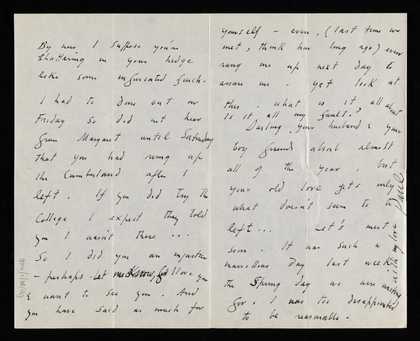 By now I suppose you're
chattering in your hedge
like some infuriated finch.
I had to dine out on
Friday so did not hear
from Margaret until Saturday
that you had rung up
the Cumberland after I
left. If you did try the
College I expect they told
you I wasn't there ...
So I did you an injustice
- perhaps. Let me know, I love you
& want to see you. And
you have said as much for
yourself - even, (last time we
met, think how long ago) even
rang me up next day to
assure me. Yet look at
this. What is it all about
Is it all my fault?
Darling, your husband & your
boy friends absent almost
all of the year, but
your old love gets only
what doesn't seem to be
left ... Let's meet
soon. It was such a
marvellous day last week
the Spring day we were
for. I was too disappointed
to be reasonable.
with my love
Paul